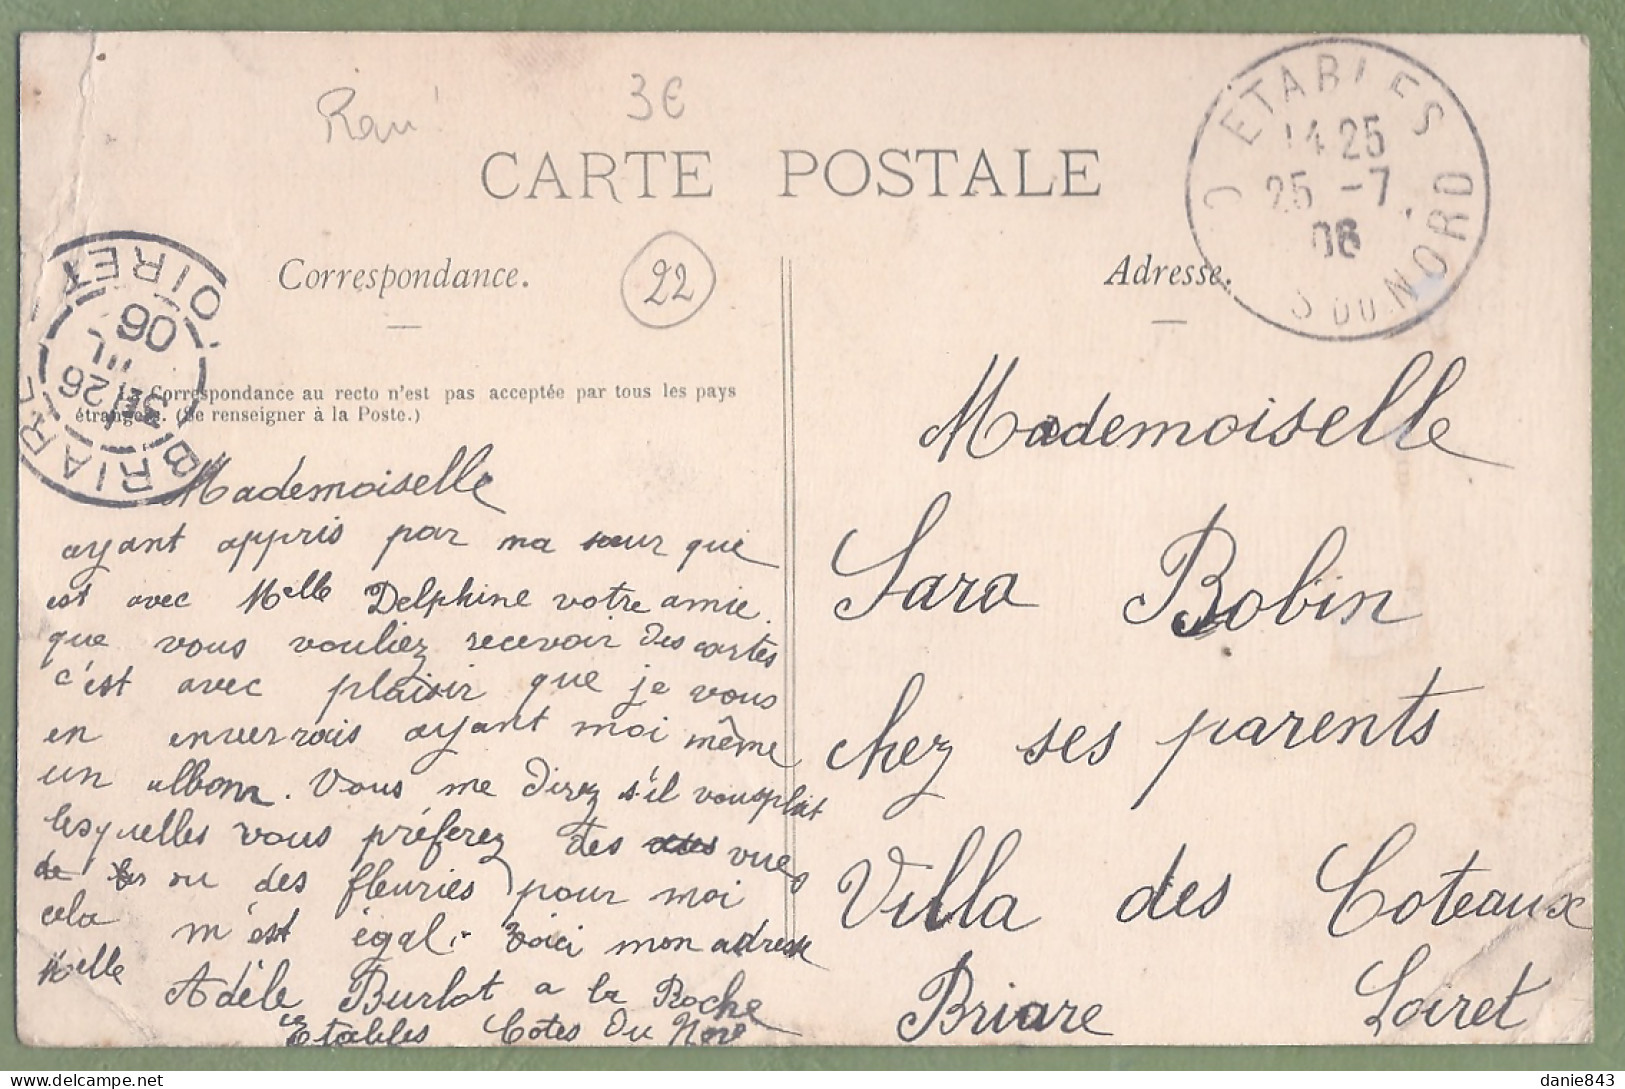 3€
CARTE POSTALE
ETABLES
14 25
25 -7
06
CS DU NORD
Correspondance.
22
Adresse.
BRIARE LOIRET
26
JUIL
06
La Correspondance au recto n'est pas acceptée par tous les pays
étrangers. (Se renseigner à la Poste.)
Mademoiselle
ayant appris par ma sœur qui
est avec Melle Delphine votre amie.
que vous vouliez recevoir des cartes
c'est avec plaisir que je vous
en enverrais ayant moi même
un album. Vous me direz s'il vous plait
lesquelles vous préferez des vues
ou des fleuries pour moi
cela m'est égal. Voici mon adresse
Melle Adèle Burlot a la Roche
Etables Cotes du Nord
Mademoiselle
Sara Bobin
chez ses parents
Villa des Coteaux
Briare Loiret
danie843